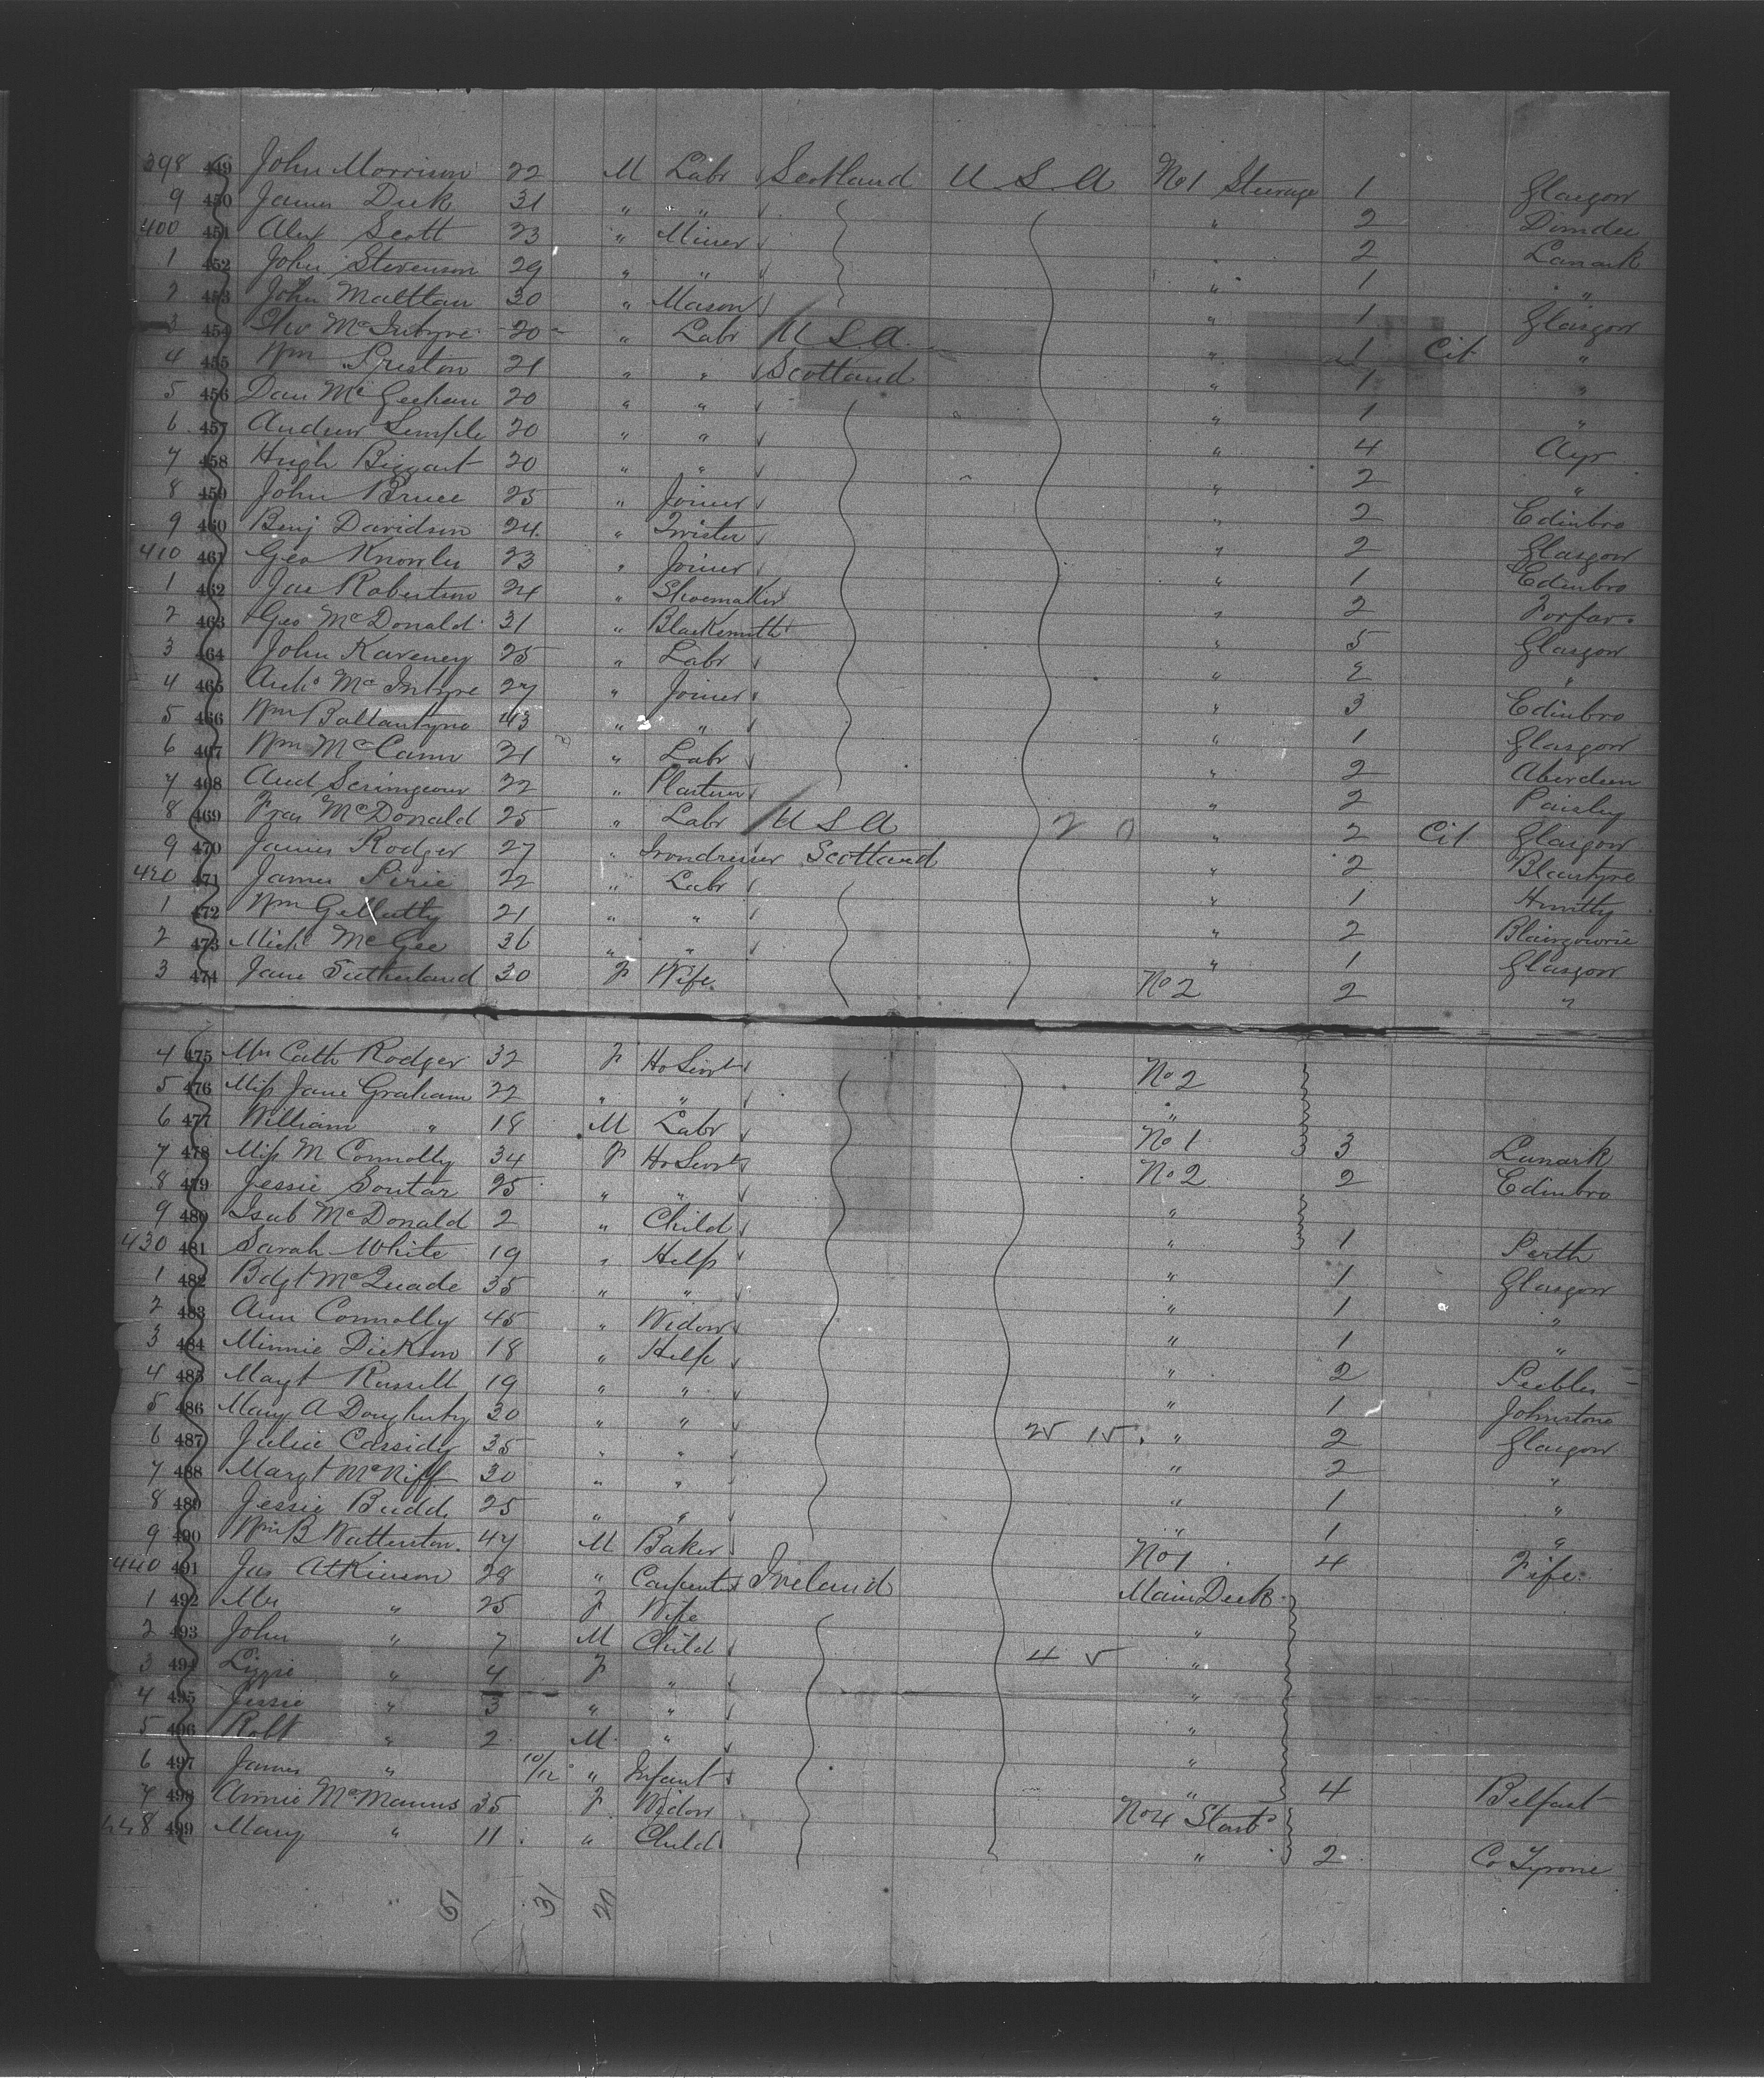 398 449 John Morrison 22 M Labr Scotland U S A No 1 Steerage 1 Glasgow
9 450 James Dick 31 " " " 2 Dundee
400 451 Alex Scott 23 " Miner " 2 Lanark
1 452 John Stevenson 29 " " " 1 "
2 453 John Maltlan 30 " Mason " 1 Glasgow
3 454 McIntyre 20 " Labr U S A " 1 Cit "
4 455 Wm Preston 21 " " Scotland " 1 "
5 456 Dan McGeehan 20 " " " 1 "
6 457 Andrew Semple 20 " " " 4 Ayr
7 458 Hugh Biggart 20 " " " 2 "
8 459 John Bruce 25 " Joiner " 2 Edinbro
9 460 Benj Davidson 24 " Twister " 2 Glasgow
410 461 Geo Knowles 23 " Joiner " 1 Edinbro
1 462 Jas Robertson 24 " Shoemaker " 2 Forfar
2 463 Geo McDonald 31 " Blacksmith " 5 Glasgow
3 464 John Kaveney 25 " Labr " 2 "
4 465 Archd McIntyre 27 " Joiner " 3 Edinbro
5 466 Wm Ballantyne 43 " " " 1 Glasgow
6 467 Wm McCann 21 " Labr " 2 Aberdeen
7 468 And Scrimgeour 22 " Plasterer " 2 Paisley
8 469 Fras McDonald 25 " Labr U S A 20 " 2 Cit Glasgow
9 470 James Rodger 27 " Irondresser Scotland " 2 Blantyre
420 471 James Pirie 22 " Labr " 1 Huntly
1 472 Wm Gellatly 21 " " " 2 Blairgowrie
2 473 Michl McGee 36 " " " 1 Glasgow
3 474 Jane Sutherland 30 F Wife No 2 2 "
4 475 Mrs Cath Rodger 32 F Ho Servt No 2
5 476 Miss Jane Graham 22 " " "
6 477 William " 18 M Labr No 1 3 Lanark
7 478 Miss M Connolly 34 F Ho Servt No 2 2 Edinbro
8 479 Jessie Soutar 25 " " "
9 480 Isab McDonald 2 " Child " 1 Perth
430 481 Sarah White 19 " Help " 1 Glasgow
1 482 Bdgt McQuade 35 " " " 1 "
2 483 Ann Connolly 45 " Widow " 1 "
3 484 Minnie Dickson 18 " Help " 2 Peebles
4 485 Magt Russell 19 " " " 1 Johnstone
5 486 Mary A Dougherty 30 " " 25 15 " 2 Glasgow
6 487 Julia Cassidy 35 " " " 2 "
7 488 Margt McNiff 30 " " " 1 "
8 489 Jessie Budd 25 " " " 1 "
9 490 Wm B Watterston 47 M Baker No 1 4 Fife
440 491 Jas Atkinson 28 " Carpenter Ireland Main Deck
1 492 Mrs " 25 F Wife "
2 493 John " 7 M Child 4 5 "
3 494 Lizzie " 4 F " "
4 495 Jessie " 3 " " "
5 496 Robt " 2 M " "
6 497 James " 10/12 " Infant " 4 Belfast
7 498 Annie McManus 35 F Widow No 4 Starb
448 499 Mary " 11 " Child " 2 Co Tyrone
61 31 20